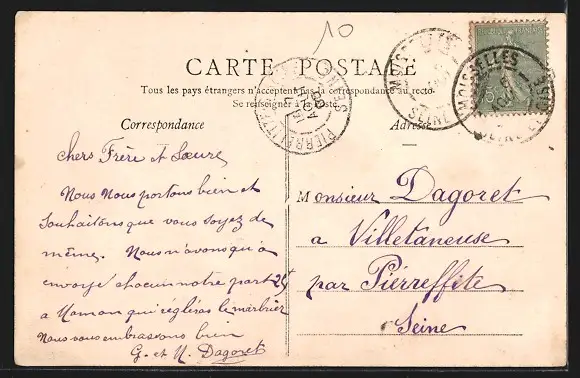 10
CARTE POSTALE
Tous les pays étrangers n'acceptent pas la correspondance au recto.
Se renseigner à la poste.
Correspondance
Chers Frère et Soeure
Nous Nous portons bien et
Souhaitons que vous soyez de
même. Nous n'avons qu'à
envoyé chacun notre part 25f
a Maman qui réglèras le marbrier
Nous vous embrassons bien
G. et M. Dagoret
Adresse
Monsieur Dagoret
a Villetaneuse
par Piérreffite
Seine
MOISSELLES
SEINE ET OISE
PIERREFITTE
SEINE
AOUT